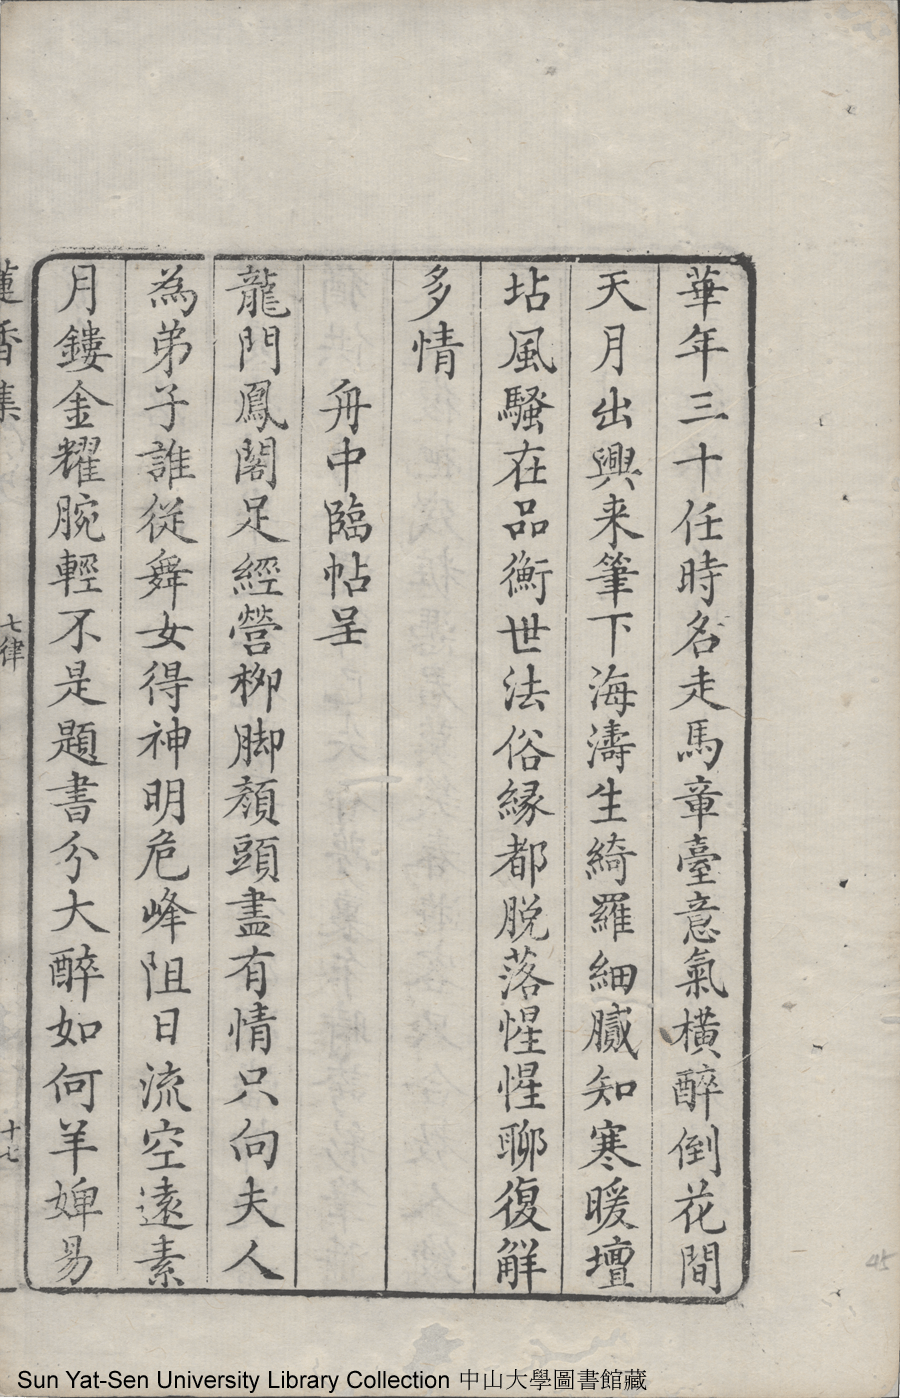 華年三十任時名走馬章臺意氣橫醉倒花間
天月出興来筆下海濤生綺羅細膩知寒暖壇
坫風騷在品衡世法俗緣都脫落惺惺聊復解
多情
舟中臨帖呈
龍門鳳閣足經營柳脚顏頭盡有情只向夫人
為弟子誰從舞女得神明危峰阻日流空遠素
月鏤金耀腕輕不是題書分大醉如何羊婢易
蓮香集
七律
十七
45
Sun Yat-Sen University Library Collection 中山大學圖書館藏